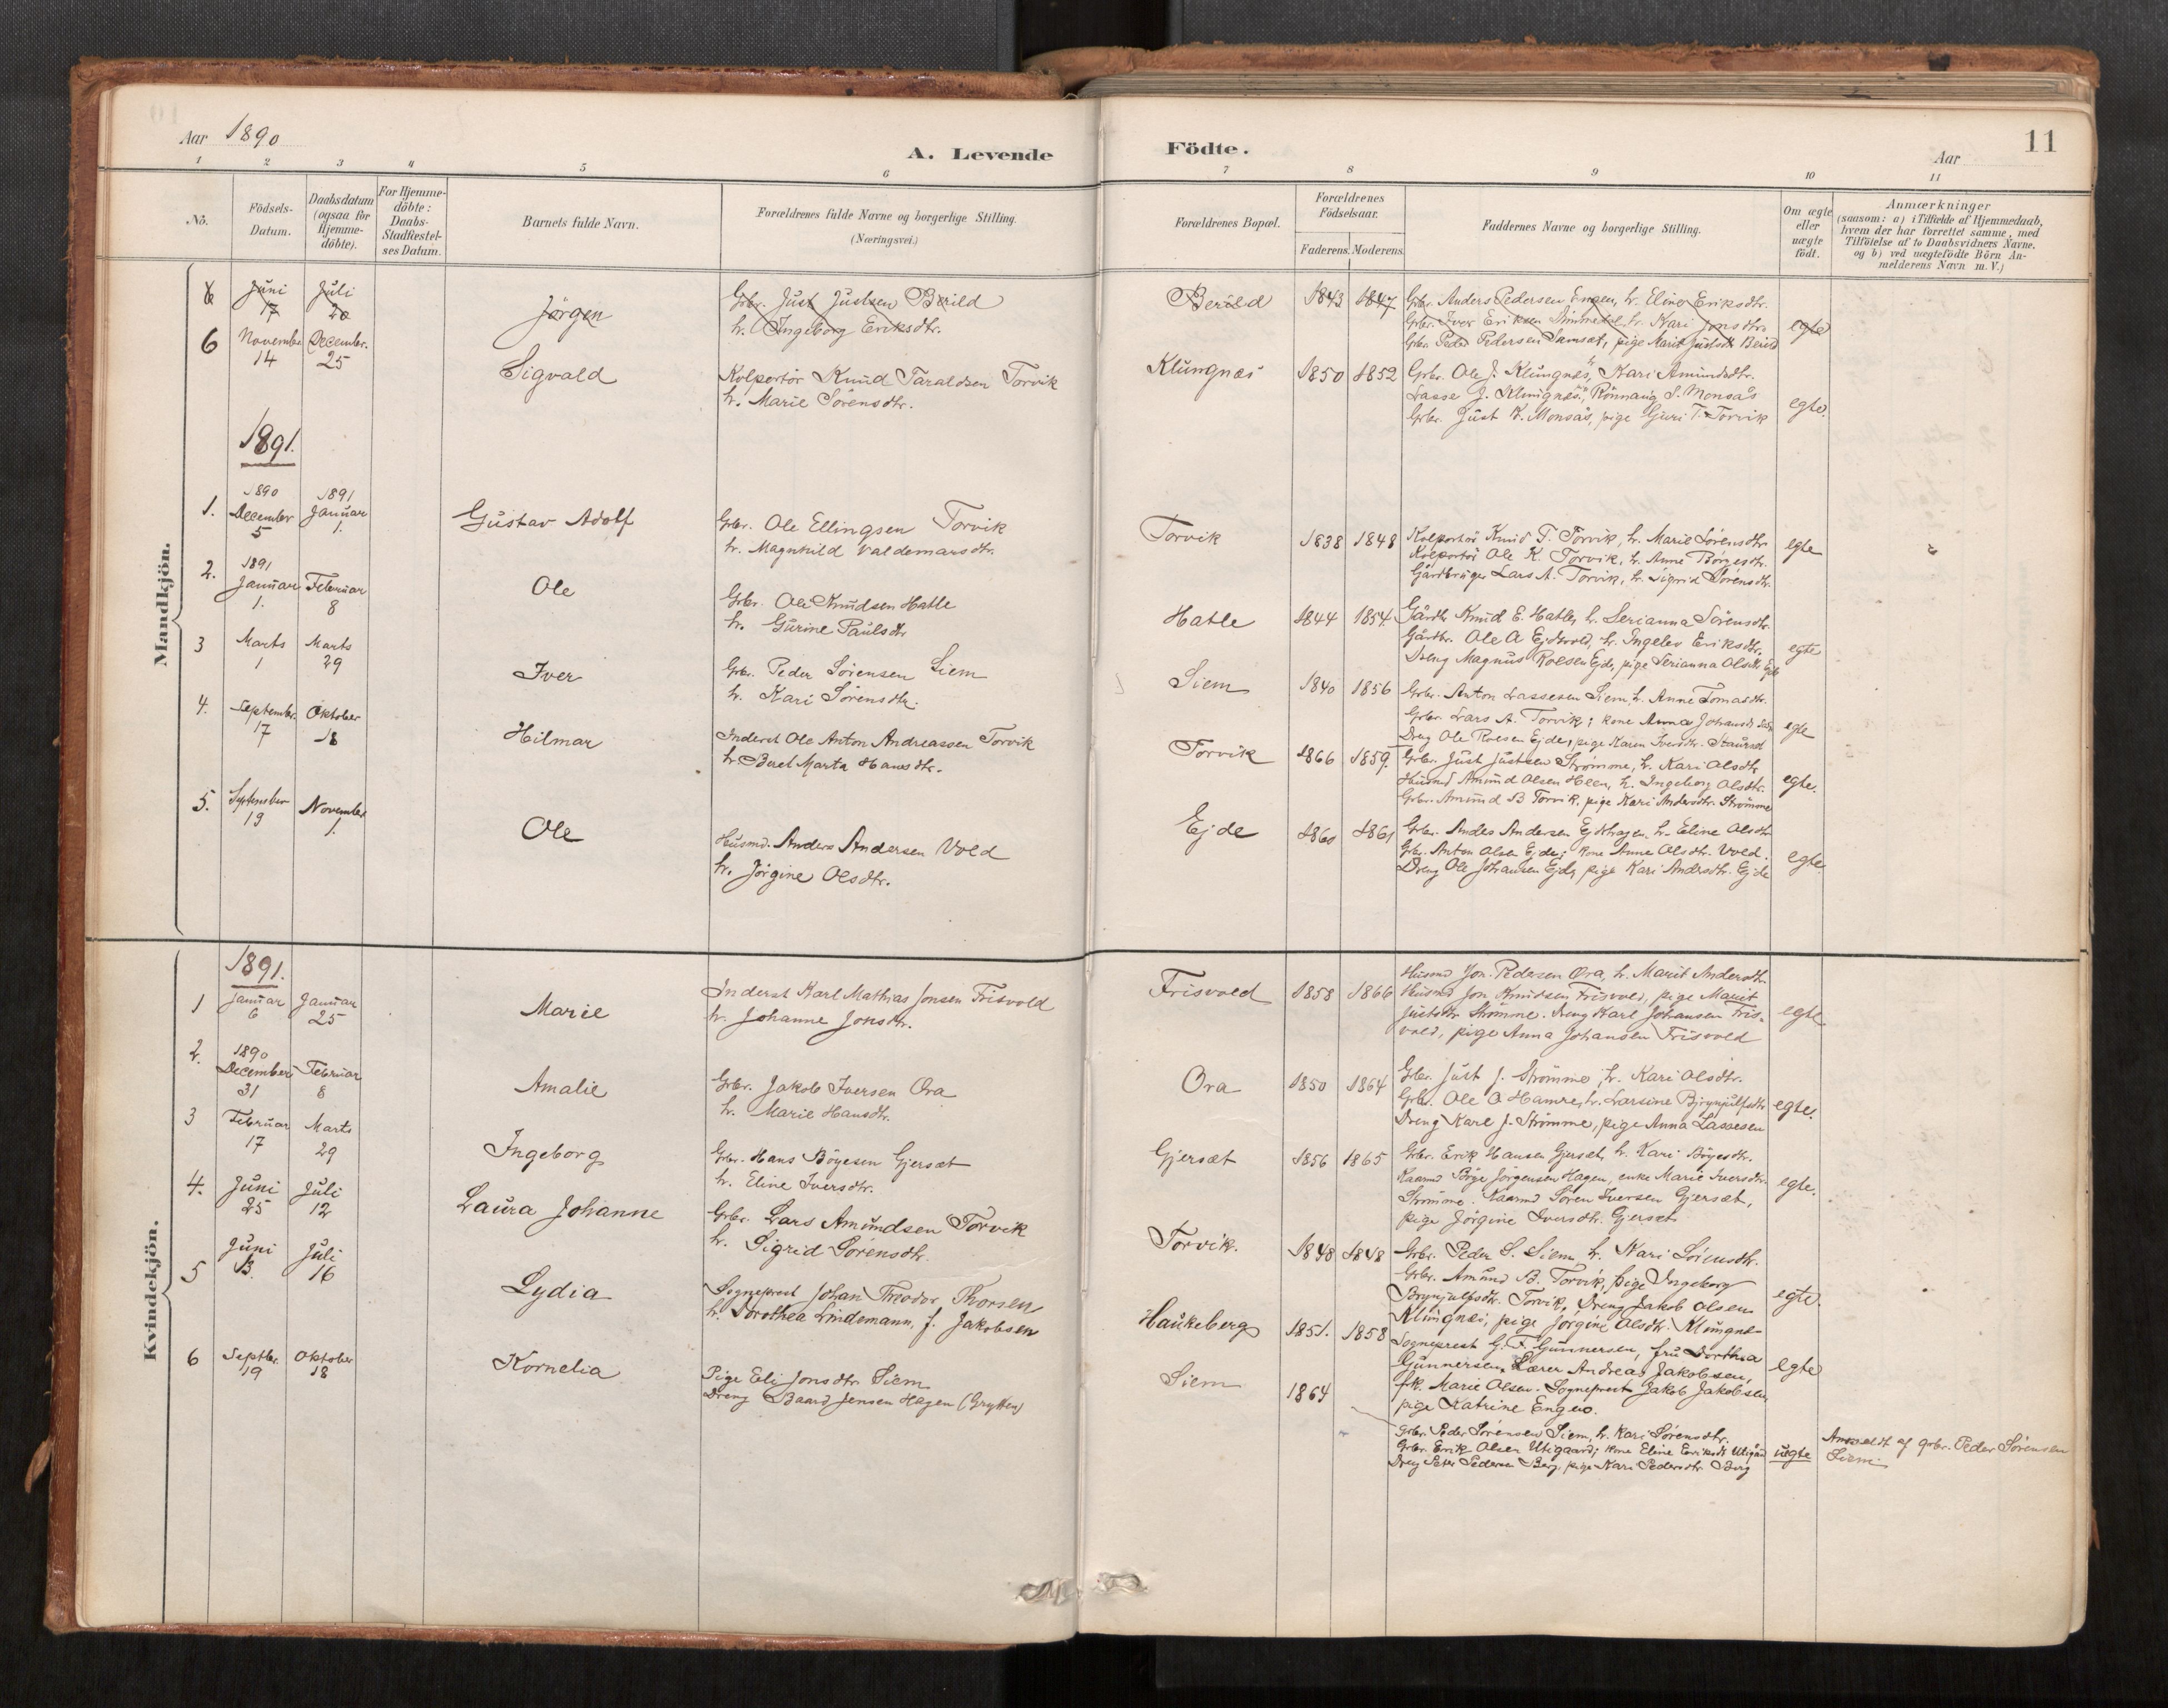 Aar 1890
A. Levende
Födte.
Aar
11
1 2 3 4 5 6
7 8 9 10 11
No.
Födsels-Datum.
Daabsdatum (ogsaa for Hjemme-döbte).
For Hjemme-döbte: Daabs-Stadfestel-ses Datum.
Barnets fulde Navn.
Forældrenes fulde Navne og borgerlige Stilling.
(Næringsvei.)
Forældrenes Bopæl.
Forældrenes Födselsaar.
Faderens. Moderens.
Faddernes Navne og borgerlige Stilling.
Om ægte eller uægte födt.
Anmærkninger
(saasom: a) i Tilfælde af Hjemmedaab,
hvem der har forrettet samme, med
Tilföielse af to Daabsvidners Navne.
og b) ved uægtefödte Börn An-
melderens Navn m. V.)
Mandkjön.
Juni 17 Juli 20 Jörgen
Grbr. Just Justsen Berild
h. Ingeborg Eriksdtr.
Berild 1843 1847
Grbr. Anders Pedersen Engen, h. Eline Eriksdtr.
Grbr. Iver Eriksen h. Kari Jonsdtr.
Grbr. Peder Pedersen Samset, pige Marit Justsdtr. Berild
egte
6 November 14 December. 25 Sigvald
Kolportör Knud Taraldsen Torvik
h. Marie Sörensdtr.
Klungnæs 1850 1852
Grbr. Ole J. Klungnæs, Kari Amundsdtr.
Lasse J. Klungnæs, Rönnaug S. Monsås
Grbr. Just K. Monsås, pige Guri T. Torvik
egte.
1891.
1. 1890 December 5 1891 Januar 1. Gustav Adolf
Grbr. Ole Ellingsen Torvik
h. Magnhild Valdemarsdtr.
Torvik 1838 1848
Kolportör Knud T. Torvik, h. Marie Sörensdtr.
Kolportör Ole K. Torvik, h. Anne Börgesdtr.
Gårdbruger Lars A. Torvik, h. Sigrid Sörensdtr.
egte
2. 1891 Januar 1. Februar 8 Ole
Grbr. Ole Knudsen Hatle
h. Gurine Paulsdtr
Hatle 1844 1854.
Gårdbr. Knud E. Hatle, h. Serianna Sörensdtr.
Gårdbr. Ole A h. Ingelev Eriksdtr.
Dreng Magnus Roesen Ejde, pige Serianna Olsdtr. Ejde
egte
3 Marts 1 Marts 29 Iver
Grbr. Peder Sörensen Siem
h. Kari Sörensdtr.
Siem 1840 1856
Grbr. Anton Lassesen Siem, h. Anne Tomasdtr.
Grbr. Lars A. Torvik; kone Anna Johansdtr.
Dreng Ole Roesen Ejde, pige Karen Iversdtr.
egte
4. September. 17 Oktober 18 Hilmar
Inderst Ole Anton Andreassen Torvik
h. Beret Marta Hansdtr.
Torvik 1866 1859.
Grbr. Just Justsen Strömme, h. Kari Olsdtr
Husmd Amund Olsen Heen, h. Ingeborg Olsdtr.
Grbr. Amund B Torvik. pige Kari Andersdtr. Strömme
egte.
5. September 19 November 1. Ole
Husmd. Anders Andersen Vold
h. Jörgine Olsdtr.
Ejde 1860 1861
Grbr. Anders Andersen Ejdehagen. h. Eline Olsdtr
Grbr. Anton Olsen Ejde; kone Anne Olsdtr. Vold.
Dreng Ole Johansen Ejde, pige Kari Andersdtr. Ejde
egte
Kvindekjön.
1891.
1 Januar 6 Januar 25 Marie
Inderst Karl Mathias Jonsen Frisvold
h. Johanne Jonsdtr.
Frisvold 1858 1866
Husmd Jon Pedersen Ora, h. Marit Andersdtr
Husmd Jon Knudsen Frisvold, pige Marit
Justsdtr Strömme. Dreng Karl Johansen Fris-
vold, pige Anna Johansen Frisvold
egte
2. 1890 December 31 Februar 8 Amalie
Grbr. Jakob Iversen Ora
h. Marie Hansdtr.
Ora 1850 1864
Grbr. Just J. Strömme, h. Kari Olsdtr.
Grbr. Ole O Hamre, h. Larsine Brynjulfsdtr
Dreng Karl J. Strömme, pige Anna Lassesen
egte.
3 Februar 17 Marts 29 Ingeborg
Grbr. Hans Böyesen Gjersæt
h. Eline Iversdtr.
Gjersæt 1856 1865
Grbr. Erik Hansen Gjersæt, h. Kari Böyesdtr.
Kaarmd Börge Jörgensen Hagen, enke Marie Iversdtr.
Strömme. Kaarmd Sören Iversen Gjersæt,
pige Jörgine Iversdtr. Gjersæt
egte.
4. Juni 25 Juli 12 Laura Johanne
Grbr. Lars Amundsen Torvik
h. Sigrid Sörensdtr.
Torvik. 1848 1848
Grbr. Peder S. Siem, h. Kari Sörensdtr.
Grbr. Amund B. Torvik, pige Ingeborg
Brynjulfsdtr. Torvik, Dreng Jakob Olsen
Klungnæs, pige Jörgine Olsdtr. Klungnæs
egte.
5 Juni 13. Juli 16 Lydia
Sogneprest Johan Theodor Thorsen
h. Dorothea Lindemann, f. Jakobsen
Haukeberg 1851. 1858
Sogneprest G. F. Gunnersen, fru Dorthea
Gunnersen, Lærer Andreas Jakobsen,
frk. Marie Olsen. Sogneprest Jakob Jakobsen,
pige Katrine Engen.
egte
6 Septbr. 19 Oktober 18 Kornelia
Pige Eli Jonsdtr Siem
Dreng Baard Jensen Hagen (Grytten)
Siem 1864
Grbr. Peder Sörensen Siem, h. Kari Sörensdtr.
Grbr. Erik Olsen Utigaard; kone Eline Eriksdtr Utigård
Dreng Peter Pedersen Berg, pige Kari Pedersdtr Berg
uegte
Anmeldt af grbr. Peder Sörensen
Siem